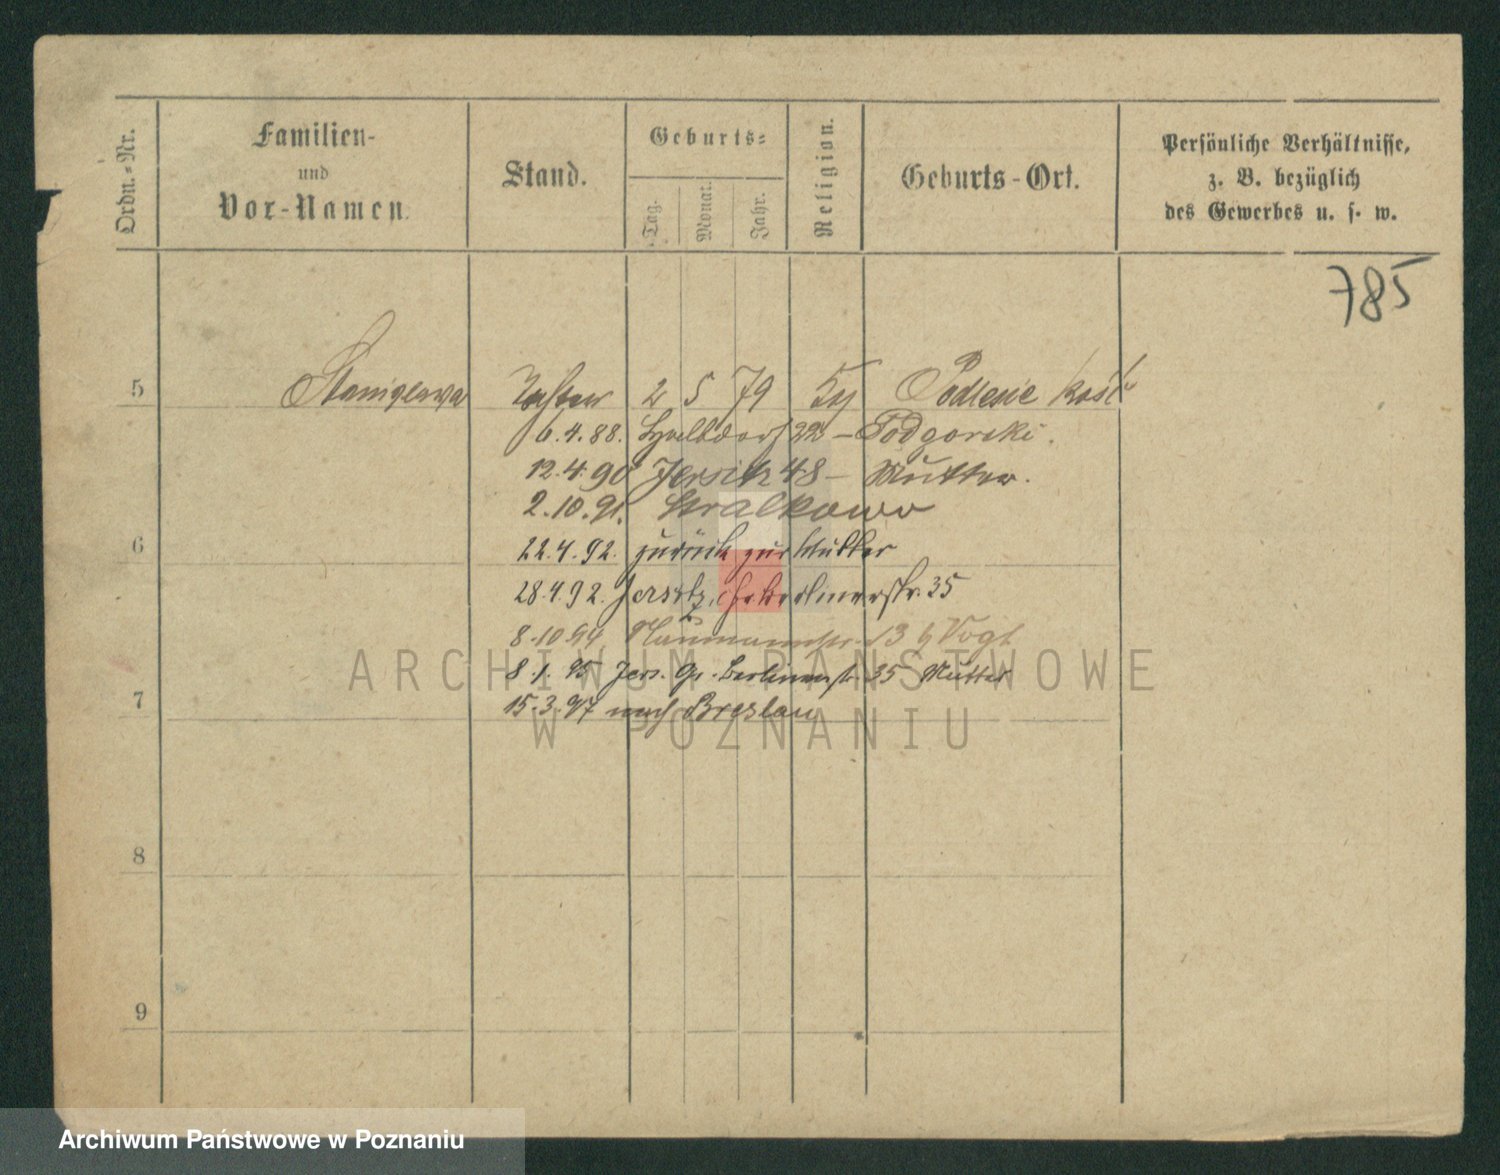 Ordn.-Nr.
Familien-
und
Vor-Namen.
Stand.
Geburts-
Tag.
Monat.
Jahr.
Religion.
Geburts-Ort.
Persönliche Verhältnisse,
z. B. bezüglich
des Gewerbes u. s. w.
785
5 Stanislawa Tochter 2 5 79 Podlesie kość
6.4.88. 22 – Podgorski.
12.4.90 Jersitz 48 – Mutter.
2.10.91. Stralkowo
6
22.4.92. zurück zur Mutter
28.4.92. Jersitz, Gr. Berlinerstr. 35
8.10.94 Naumannstr. 13 b Vogt
8.1.95 Jers. Gr. Berlinerstr. 35 Mutter
7
15.3.97 nach Breslau
8
9
ARCHIWUM PAŃSTWOWE
W POZNANIU
Archiwum Państwowe w Poznaniu